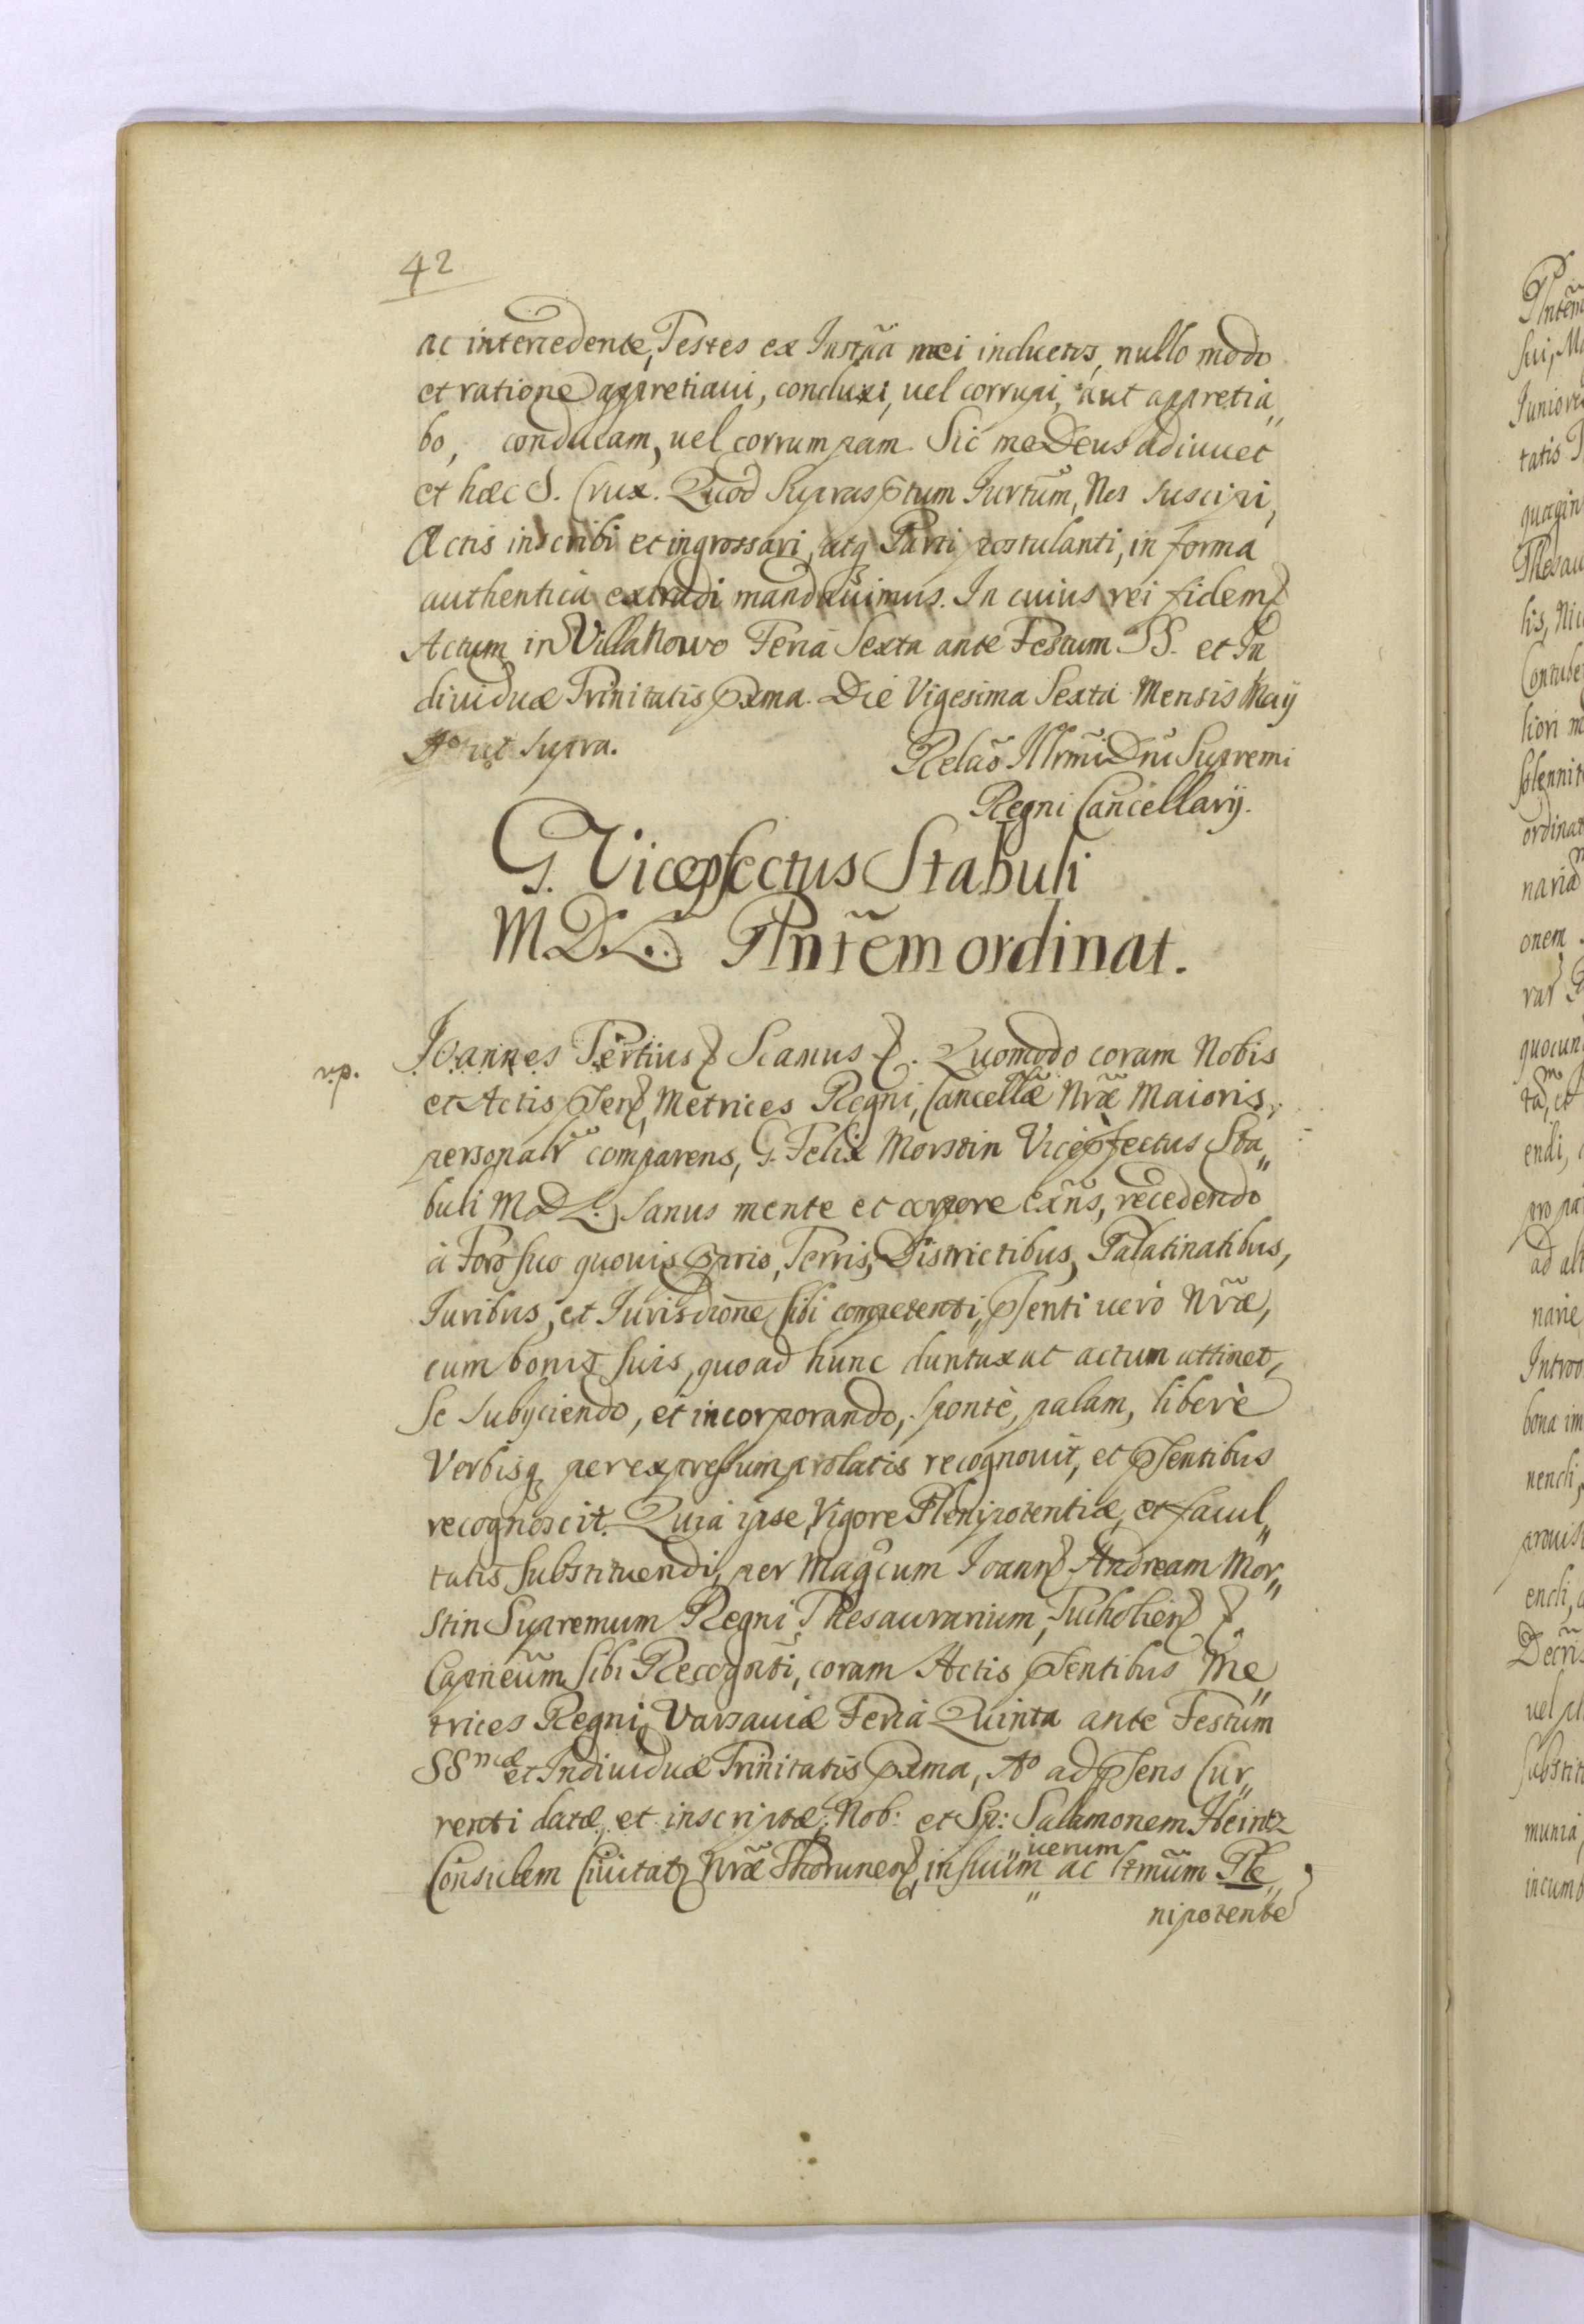 42
ac intercedente, Testes ex Instña mei inductos, nullo modo
et ratione appretiaui, conduxi, uel corrupi, aut appretia„
bo, conducam, uel corrumpam. Sic me Deus adiuuet
et hæc S. Crux. Quod suprasptum Iurtũm, Nos suscipi,
Actis inscribi et ingrossari, atq Parti postulanti, in forma
authentica extradi mandauimus. In cuius rei fidem
Actum in Villa Nowo Feria Sexta ante Festum SS. et In
diuiduæ Trinitatis pxma. Die Vigesima Sexta Mensis Maij
Aº ut supra.
Relaõ Illrmi Dni Supremi
Regni Cancellarij.
G. Vicepfectus Stabuli
M.D.L. Plntẽm ordinat.
np.
Ioannes Tertius Scamus. Quomodo coram Nobis
et Actis psen, Metrices Regni, Cancellæ Nræ Maioris,
personalr comparens, G. Felix Morstin Vicepfectus Sta„
buli M.D.L. sanus mente et corpore exñs, recedendo
à Foro suo quouis pprio, Terris, Districtibus, Palatinatibus,
Iuribus, et Iurisdione sibi competenti, psenti uerò Nræ,
cum bonis suis, quo ad hunc duntaxat actum attinet,
se subyciendo, et incorporando, spontè, palam, liberè
Verbisq per expressum prolatis recognouit, et psentibus
recognoscit. Quia ipse, Vigore Plenipotentiæ, et facul„
tatis substituendi, per Magcum Ioann Andream Mor„
stin Supremum Regni Thesaurarium, Tucholien
Capneũm sibi Recognti, coram Actis psentibus Me„
trices Regni, Varsauiæ Feria Quinta ante Festum
SSmæ et Indiuiduæ Trinitatis pxma, Aº ad psens Cur„
renti datæ, et inscriptæ, Nob: et Sp: Salamonem Heintz
uerum
Consulem Ciuitat Nræ Thorunen, in suum ac ltmũm Ple„
nipotente